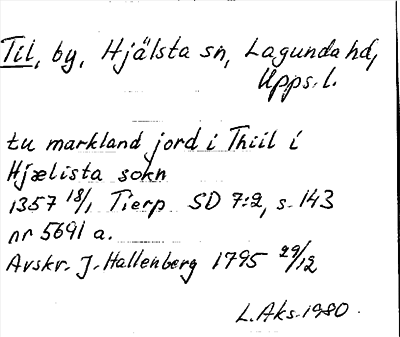 Til, by, Hjälsta sn, Lagunda hd,
Upps. l.
tu markland jord i Thiil i
Hjælista sokn
1357 18/1 Tierp SD 7:2, s. 143
nr 5691 a.
Avskr. J. Hallenberg 1795 29/12
L. Aks. 1980.